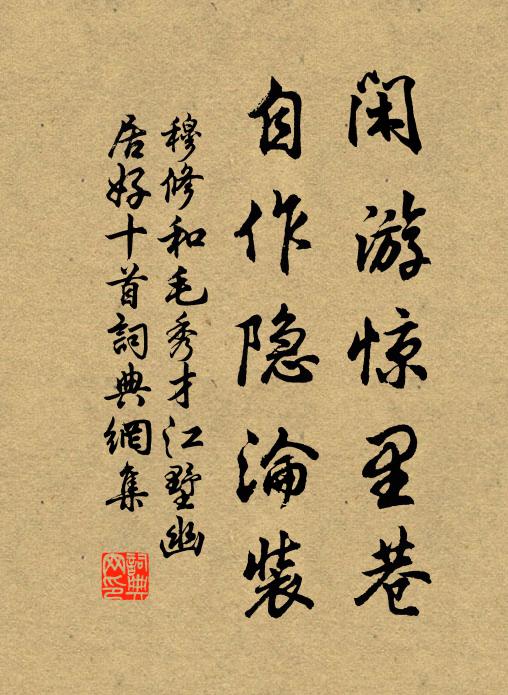 闲游惊里巷
自作隐淪装
穆修和毛秀才江墅幽
居好十首詞典網集
詞典网印